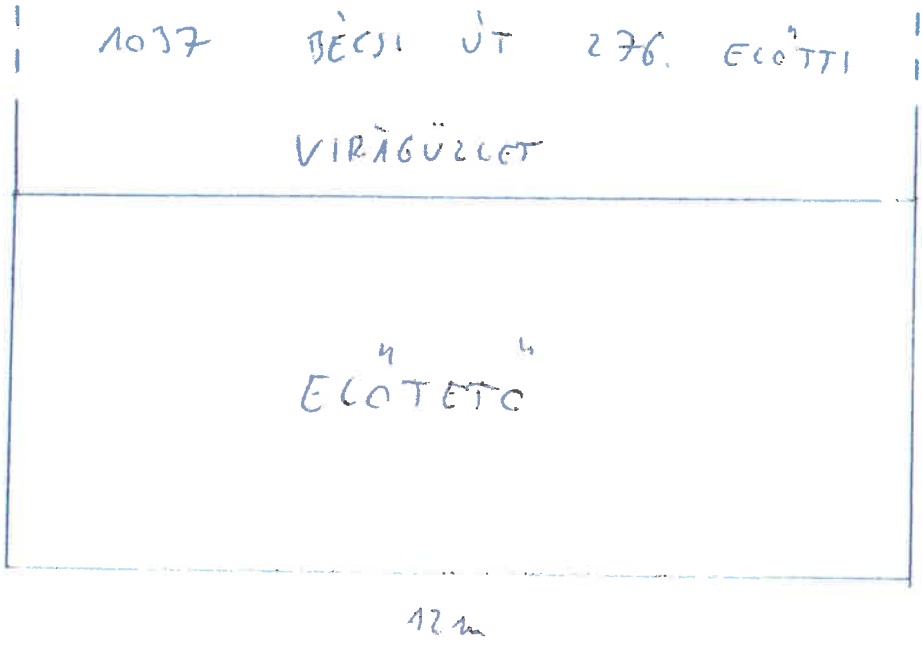 1037 BÉCSI ÚT 276. ELŐTTI
VIRÁGÜZLET
ELŐTETŐ
12 m